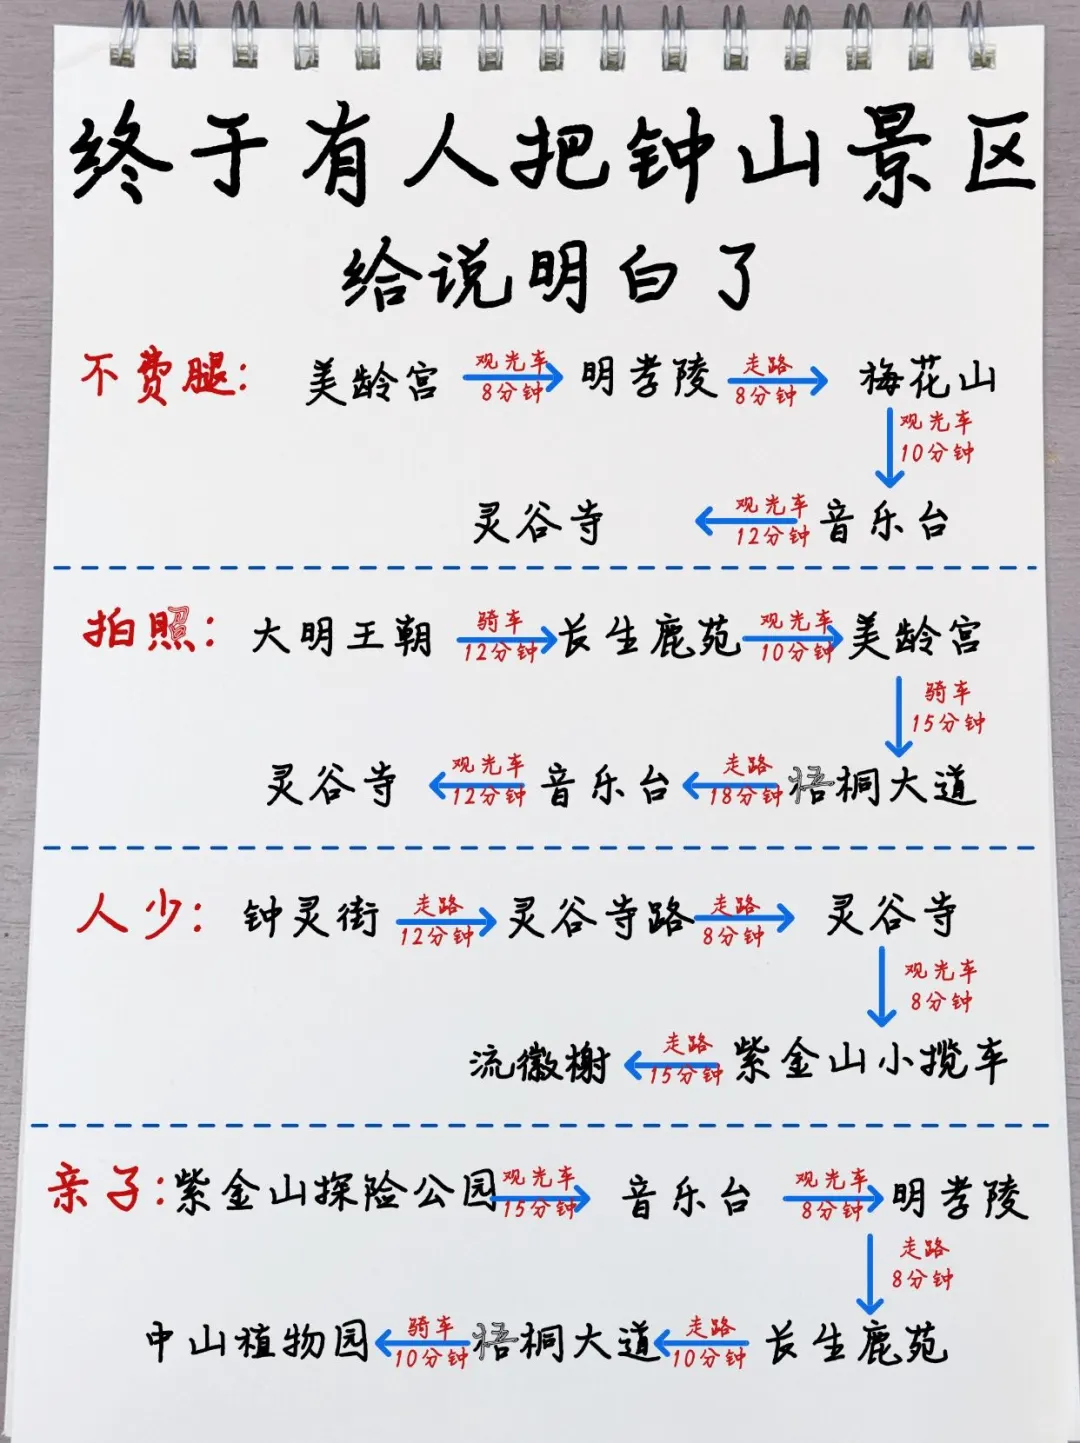 终于有人把钟山景区
给说明白了
不费腿: 美龄宫 观光车 8分钟 明孝陵 走路 8分钟 梅花山
观光车
10分钟
灵谷寺 观光车 12分钟 音乐台
拍照: 大明王朝 骑车 12分钟 长生鹿苑 观光车 10分钟 美龄宫
骑车
15分钟
灵谷寺 观光车 12分钟 音乐台 走路 18分钟 梧桐大道
人少: 钟灵街 走路 12分钟 灵谷寺路 走路 8分钟 灵谷寺
观光车
8分钟
流徽榭 走路 15分钟 紫金山小揽车
亲子: 紫金山探险公园 观光车 15分钟 音乐台 观光车 8分钟 明孝陵
走路
8分钟
中山植物园 骑车 10分钟 梧桐大道 走路 10分钟 长生鹿苑